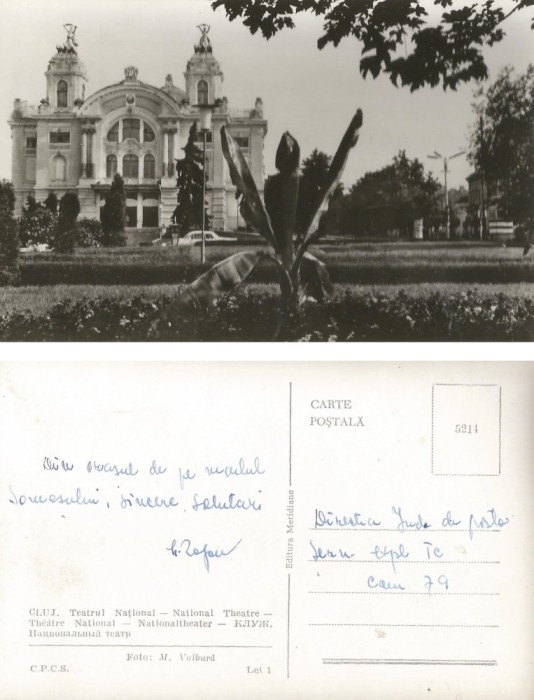 Din orașul de pe malul
Someșului, sincere salutări
CARTE
POȘTALĂ
5214
Editura Meridiane
Direcția Jud. de poșta
Serv. expl Tc
Cam 79
CLUJ. Teatrul Național — National Theatre —
Théâtre National — Nationaltheater — КЛУЖ.
Национальный театр
Foto: M. Volbură
C.P.C.S. Lei 1